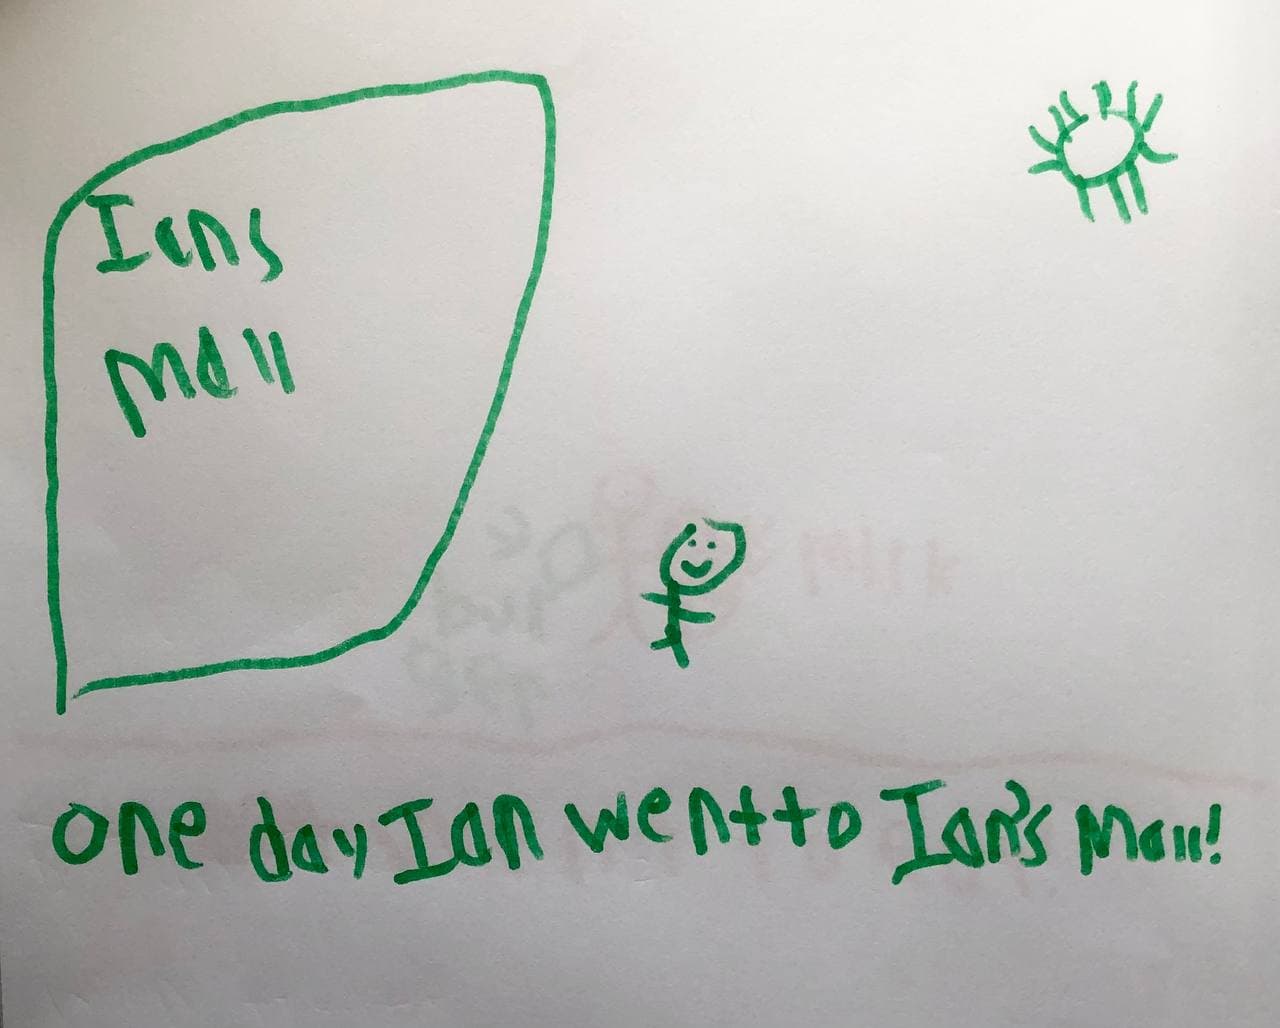 Ians
Mall
One day Ian went to Ian's Mall!